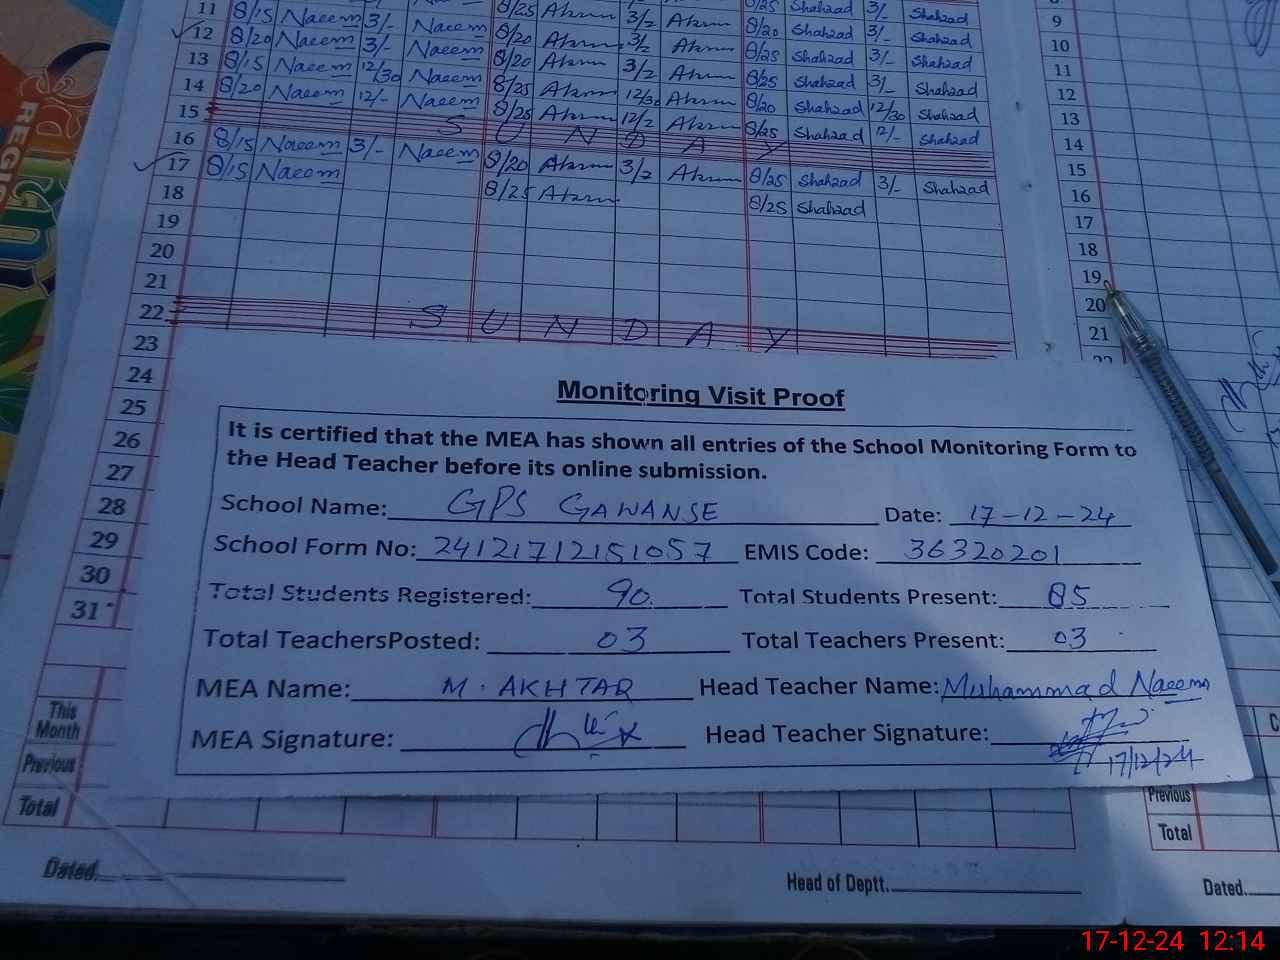 11 8/15 Naeem 3/- Naeem 8/25 Akram 3/2 Akram 8/25 Shahzad 3/- Shahzad
12 8/20 Naeem 3/- Naeem 8/20 Akram 3/2 Akram 8/20 Shahzad 3/- Shahzad
13 8/15 Naeem 12/30 Naeem 8/20 Akram 3/2 Akram 8/25 Shahzad 3/- Shahzad
14 8/20 Naeem 12/- Naeem 8/25 Akram 12/30 Akram 8/25 Shahzad 3/- Shahzad
8/25 Akram 12/2 Akram 8/20 Shahzad 12/30 Shahzad
15 SUNDAY 8/25 Shahzad 12/- Shahzad
16 8/15 Naeem 3/- Naeem 8/20 Akram 3/2 Akram 8/25 Shahzad 3/- Shahzad
17 8/15 Naeem 8/25 Akram 8/25 Shahzad
18
19
20
21
22 SUNDAY
23
24
25
26
27
28
29
30
31
Monitoring Visit Proof
It is certified that the MEA has shown all entries of the School Monitoring Form to
the Head Teacher before its online submission.
School Name: GPS GAWANSE Date: 17-12-24
School Form No: 24121712151057 EMIS Code: 36320201
Total Students Registered: 90 Total Students Present: 85
Total TeachersPosted: 03 Total Teachers Present: 03
MEA Name: M. AKHTAR Head Teacher Name: Muhammad Naeem
MEA Signature: Head Teacher Signature:
17/12/24
This
Month
Previous
Total
Dated. Head of Deptt.
9
10
11
12
13
14
15
16
17
18
19
20
21
22
Previous
Total
Dated.
REGIS
17-12-24 12:14